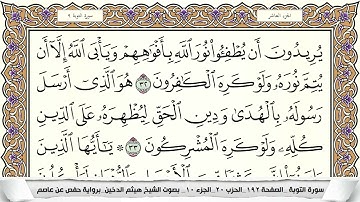 الجزء العاشر
سورة التوبة ٩
يُرِيدُونَ أَن يُطْفِـُٔوا۟ نُورَ ٱللَّهِ بِأَفْوَٰهِهِمْ وَيَأْبَى ٱللَّهُ إِلَّآ أَن
يُتِمَّ نُورَهُۥ وَلَوْ كَرِهَ ٱلْكَـٰفِرُونَ ٣٢ هُوَ ٱلَّذِىٓ أَرْسَلَ
رَسُولَهُۥ بِٱلْهُدَىٰ وَدِينِ ٱلْحَقِّ لِيُظْهِرَهُۥ عَلَى ٱلدِّينِ
كُلِّهِۦ وَلَوْ كَرِهَ ٱلْمُشْرِكُونَ ٣٣ ۞ يَـٰٓأَيُّهَا ٱلَّذِينَ
سورة التوبة _ الصفحة ١٩٢ _ الحزب ٢٠ _ الجزء ١٠ _ بصوت الشيخ هيثم الدخين _ برواية حفص عن عاصم